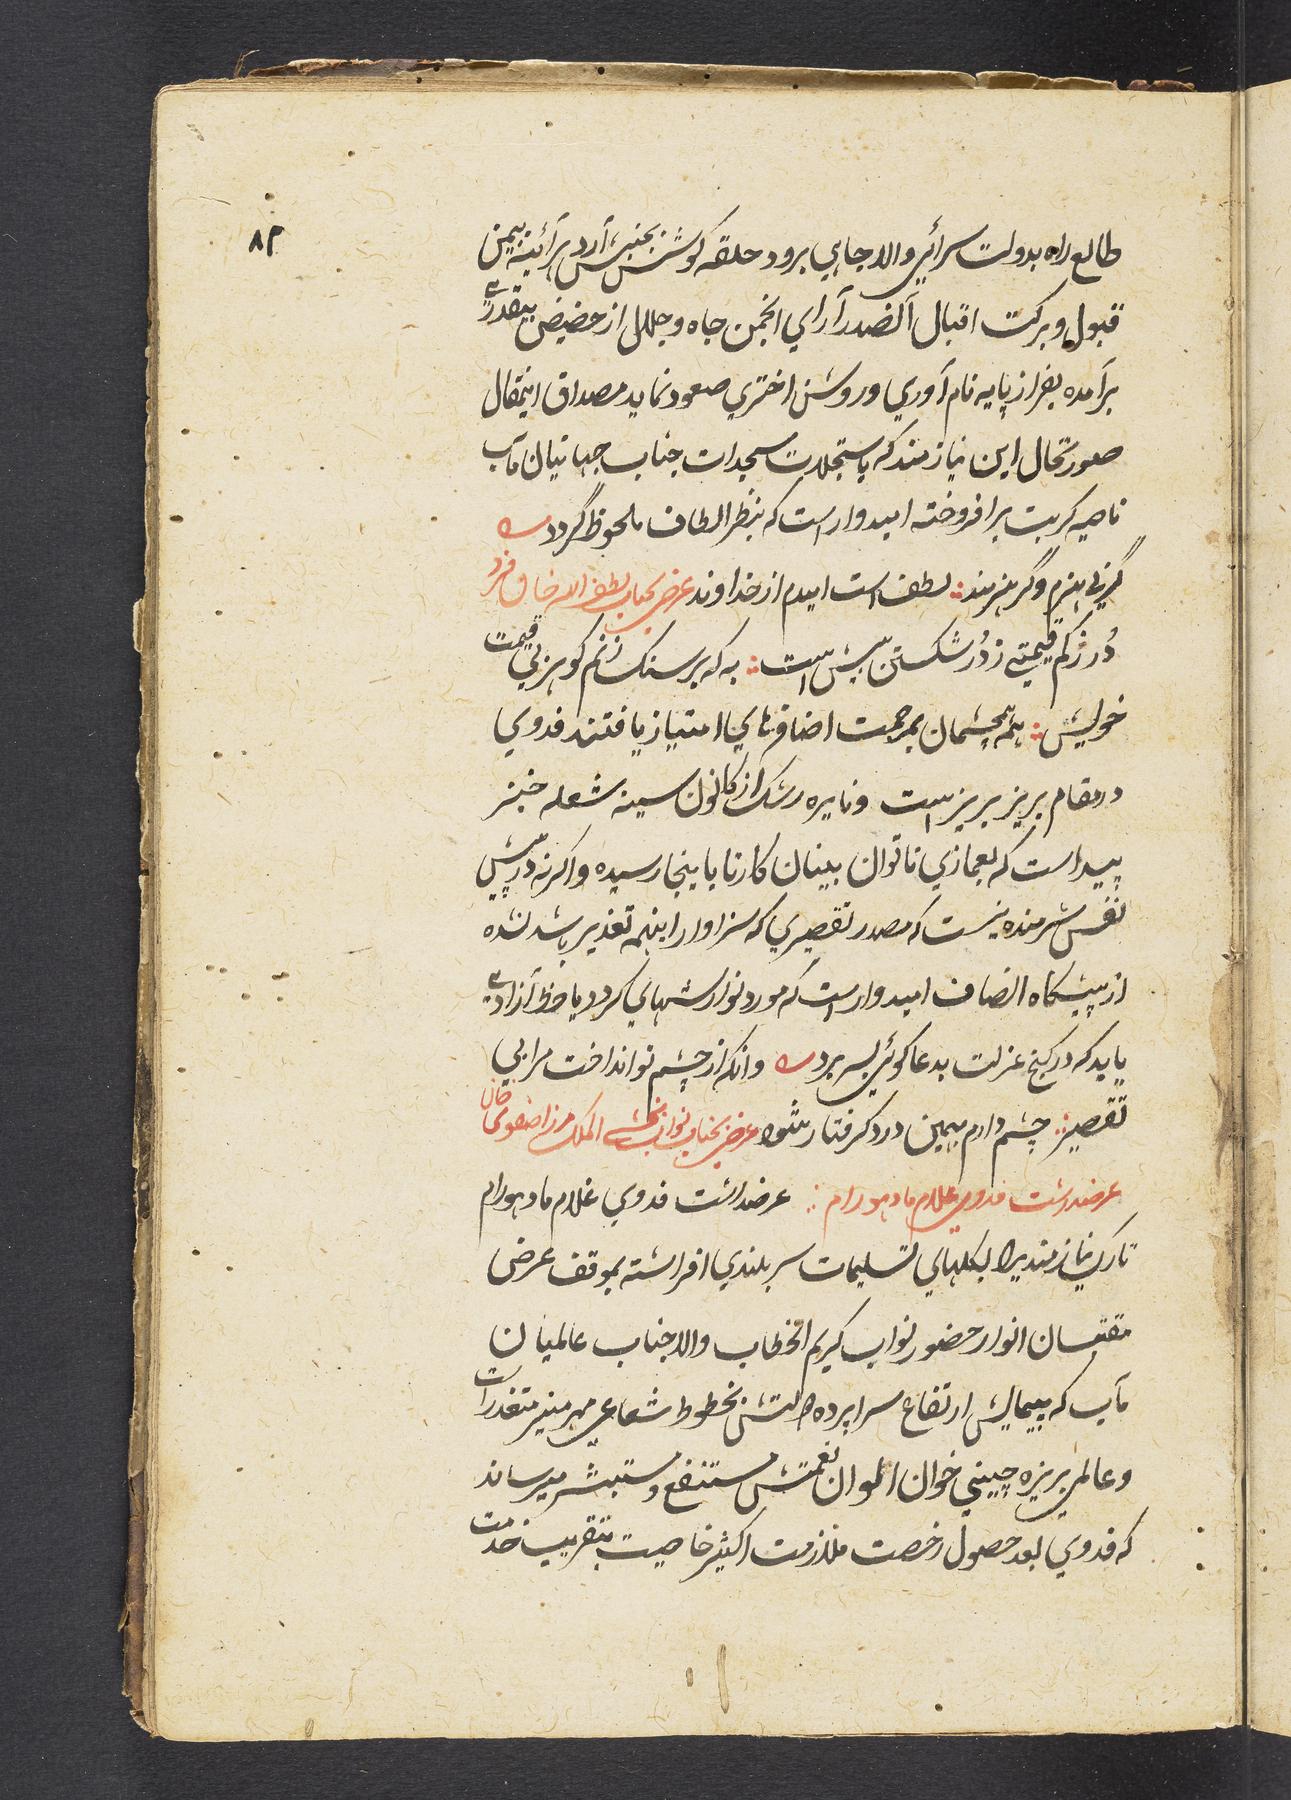 ۸۲
طالع راه بدولت سرائی والا جاهی برود حلقه کوشش بجنبش آرد هر آئینه بیمن
قبول و برکت اقبال آنصدر آرای انجمن جاه و جلال از حضیض بیقدری
برآمده بفراز پایه نام آوری و روشن اختری صعود نماید مصداق اینمقال
صورتحال این نیازمند که سجدات جناب جهانیان مآب
ناصیه بر افروخته امیدوار است که بنظر الطاف ملحوظ گردد
گر بی هنرم وگر هنرمند لطف است امیدم از خداوند عرض بجناب لطف الله خان فرد
دُر ز کم قیمتی ز دُر شکستن بیش است به که بر سنک زنم کوهر بی قیمت
خویش هم چشمان بمرحمت اضافهای امتیاز یافتند فدوی
در مقام بریز بریز است و نایره رشک از کانون سینه شعله خیز
پیدا است که بغمازی ناتوان بینان کارنا باینجا رسیده و اکرنه در پیش
نفس شرمنده نیست که مصدر تقصیری که سزاوار اینهمه تعذیر باشد نشده
از پیشکاه انصاف امیدوار است که مورد نوازشهای کردد یا خط آزادی
یابد که در کنج عزلت بدعا کوئی بسر برد وانکه از چشم تو انداخت مرا بی
تقصیر چشم دارم بهمین درد کرفتار شود عرض بجناب نواب بخشی الملک مرزا صفوی خان
عرضداشت فدوی غلام مادهورام عرضداشت فدوی غلام مادهورام
تارک نیازمندیرا بکلهای تسلیمات سربلندی افراشته بموقف عرض
مقتبسان انوار حضور نواب کریم الخطاب والا جناب عالمیان
مآب که پیمایش ارتفاع سراپرده بخطوط شعاعی مهر منیر متعذر است
و عالمی بریزه چینی خوان الوان نعمتش مستنفع و مستبشر میرساند
که فدوی بعد حصول رخصت ملازمت اکثیر خاصیت بتقریب خدمت